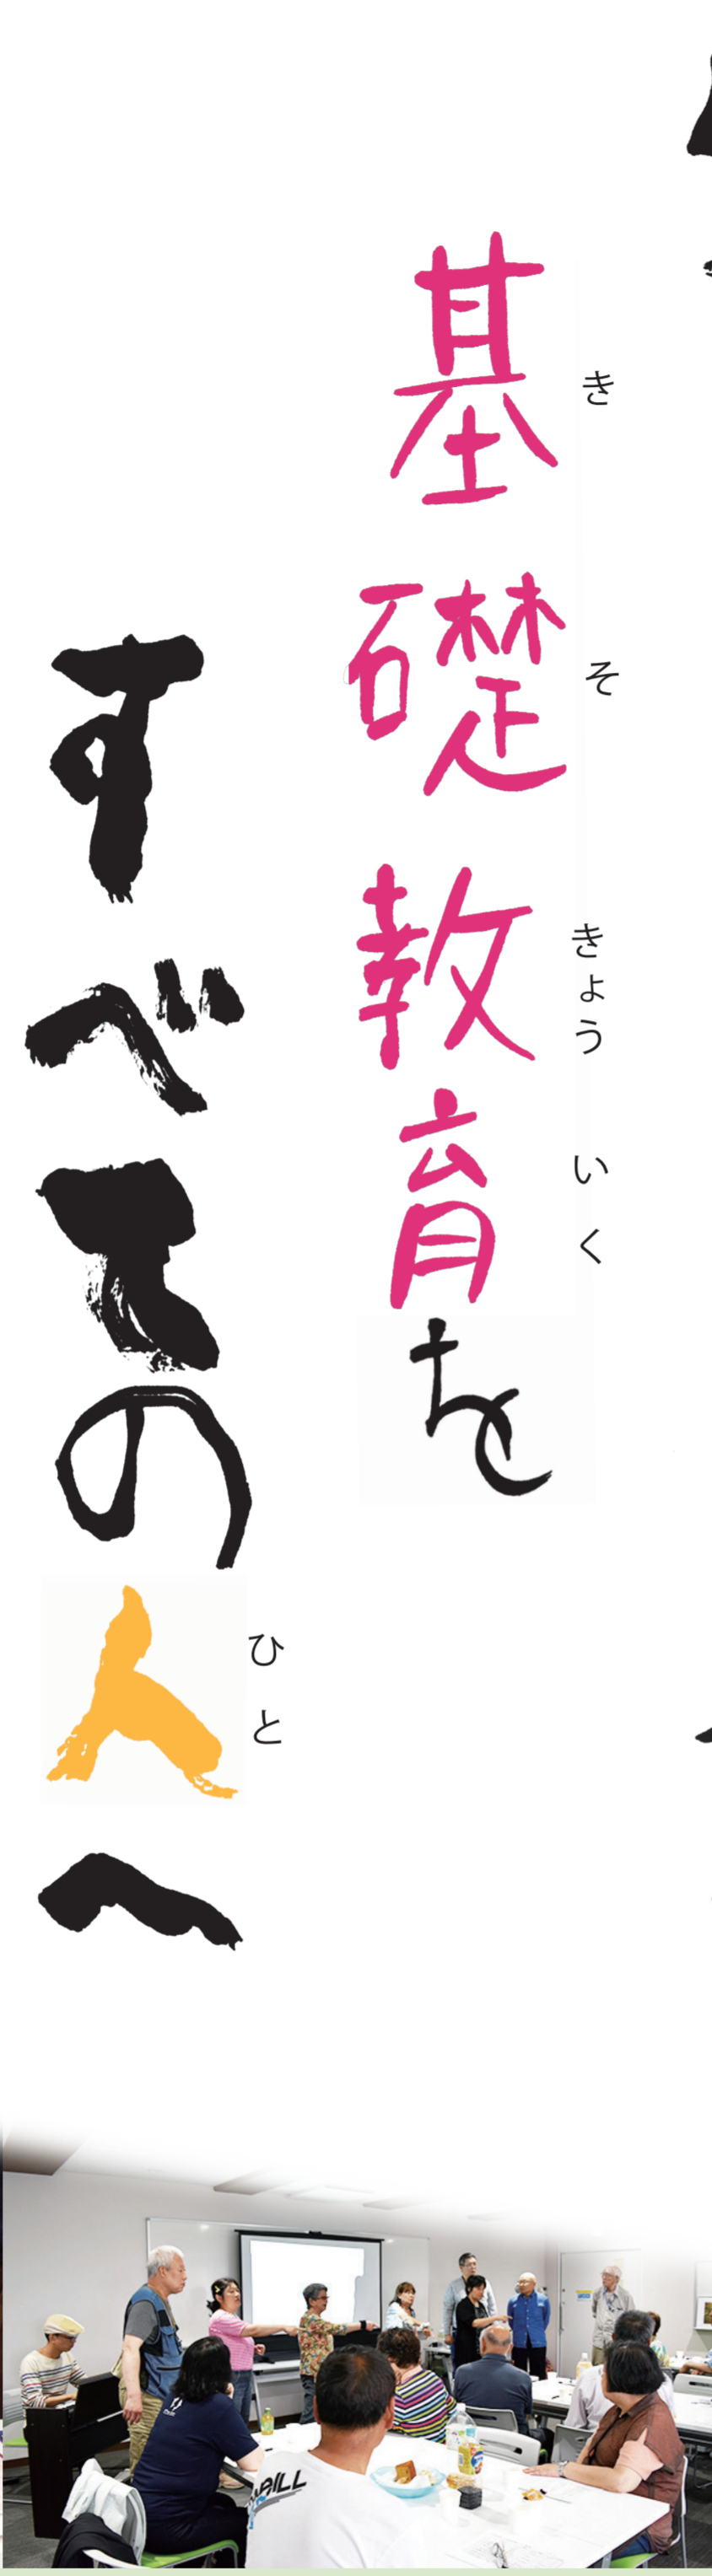 基礎教育を
き そ きょう い く
すべての人へ
ひ と